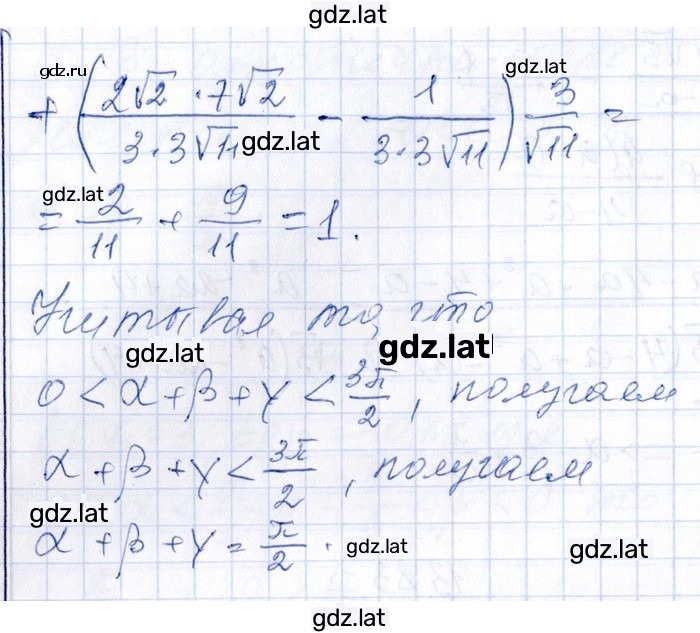 gdz.lat
gdz.ru gdz.lat
+ ( 2√2 · 7√2 / 3·3√11 − 1 / 3·3√11 ) 3/√11 =
gdz.lat
gdz.lat
= 2/11 + 9/11 = 1.
Учитывая то, что
gdz.lat gdz.lat
0 < α + β + γ < 3π/2, получаем
α + β + γ < 3π/2, получаем
gdz.lat
α + β + γ = π/2.
gdz.lat gdz.lat
gdz.lat